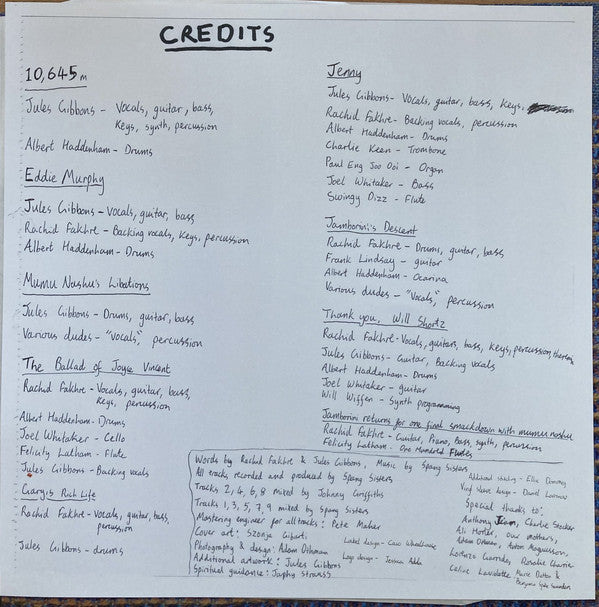 CREDITS
10,645m
Jules Gibbons - Vocals, guitar, bass,
Keys, synth, percussion
Albert Haddenham - Drums
Eddie Murphy
Jules Gibbons - Vocals, guitar, bass
Rachid Fakhre - Backing vocals, Keys, percussion
Albert Haddenham - Drums
Mumu Nashu's Libations
Jules Gibbons - Drums, guitar, bass
Various dudes - "Vocals," percussion
The Ballad of Joyce Vincent
Rachid Fakhre - Vocals, guitar, bass,
Keys, percussion
Albert Haddenham - Drums
Joel Whitaker - Cello
Felicity Latham - Flute
Jules Gibbons - Backing vocals
Gary's Rich Life
Rachid Fakhre - Vocals, guitar, bass,
percussion
Jules Gibbons - drums
Jenny
Jules Gibbons - Vocals, guitar, bass, Keys,
Rachid Fakhre - Backing vocals, percussion
Albert Haddenham - Drums
Charlie Keen - Trombone
Paul Eng Joo Ooi - Organ
Joel Whitaker - Bass
Swingy Dizz - Flute
Jamborini's Descent
Rachid Fakhre - Drums, guitar, bass
Frank Lindsay - guitar
Albert Haddenham - Ocarina
Various dudes - "Vocals," percussion
Thank you, Will Shortz
Rachid Fakhre - Vocals, guitars, bass, Keys, percussion,
Jules Gibbons - Guitar, Backing vocals
Albert Haddenham - Drums
Joel Whitaker - guitar
Will Wiffen - Synth programming
Jamborini returns for one final smackdown with mumu nashu
Rachid Fakhre - Guitar, Piano, Bass, synth, percussion
Felicity Latham - One Hundred Flutes
Words by Rachid Fakhre & Jules Gibbons, Music by Spang Sisters
All tracks recorded and produced by Spang Sisters
Tracks 2, 4, 6, 8 mixed by Johnny Griffiths
Tracks 1, 3, 5, 7, 9 mixed by Spang Sisters
Mastering engineer for all tracks: Pete Maher
Cover art: Szonja
Label design -
Photography & design: Adam Othman
Logo design -
Additional artwork: Jules Gibbons
Spiritual guidance: Japhy
Additional - Ellie
Vinyl sleeve design - Daniel
Special thanks to:
Anthony Charlie
Ali our mothers,
Adam Othman,
Lorenzo Rosalie
Celine